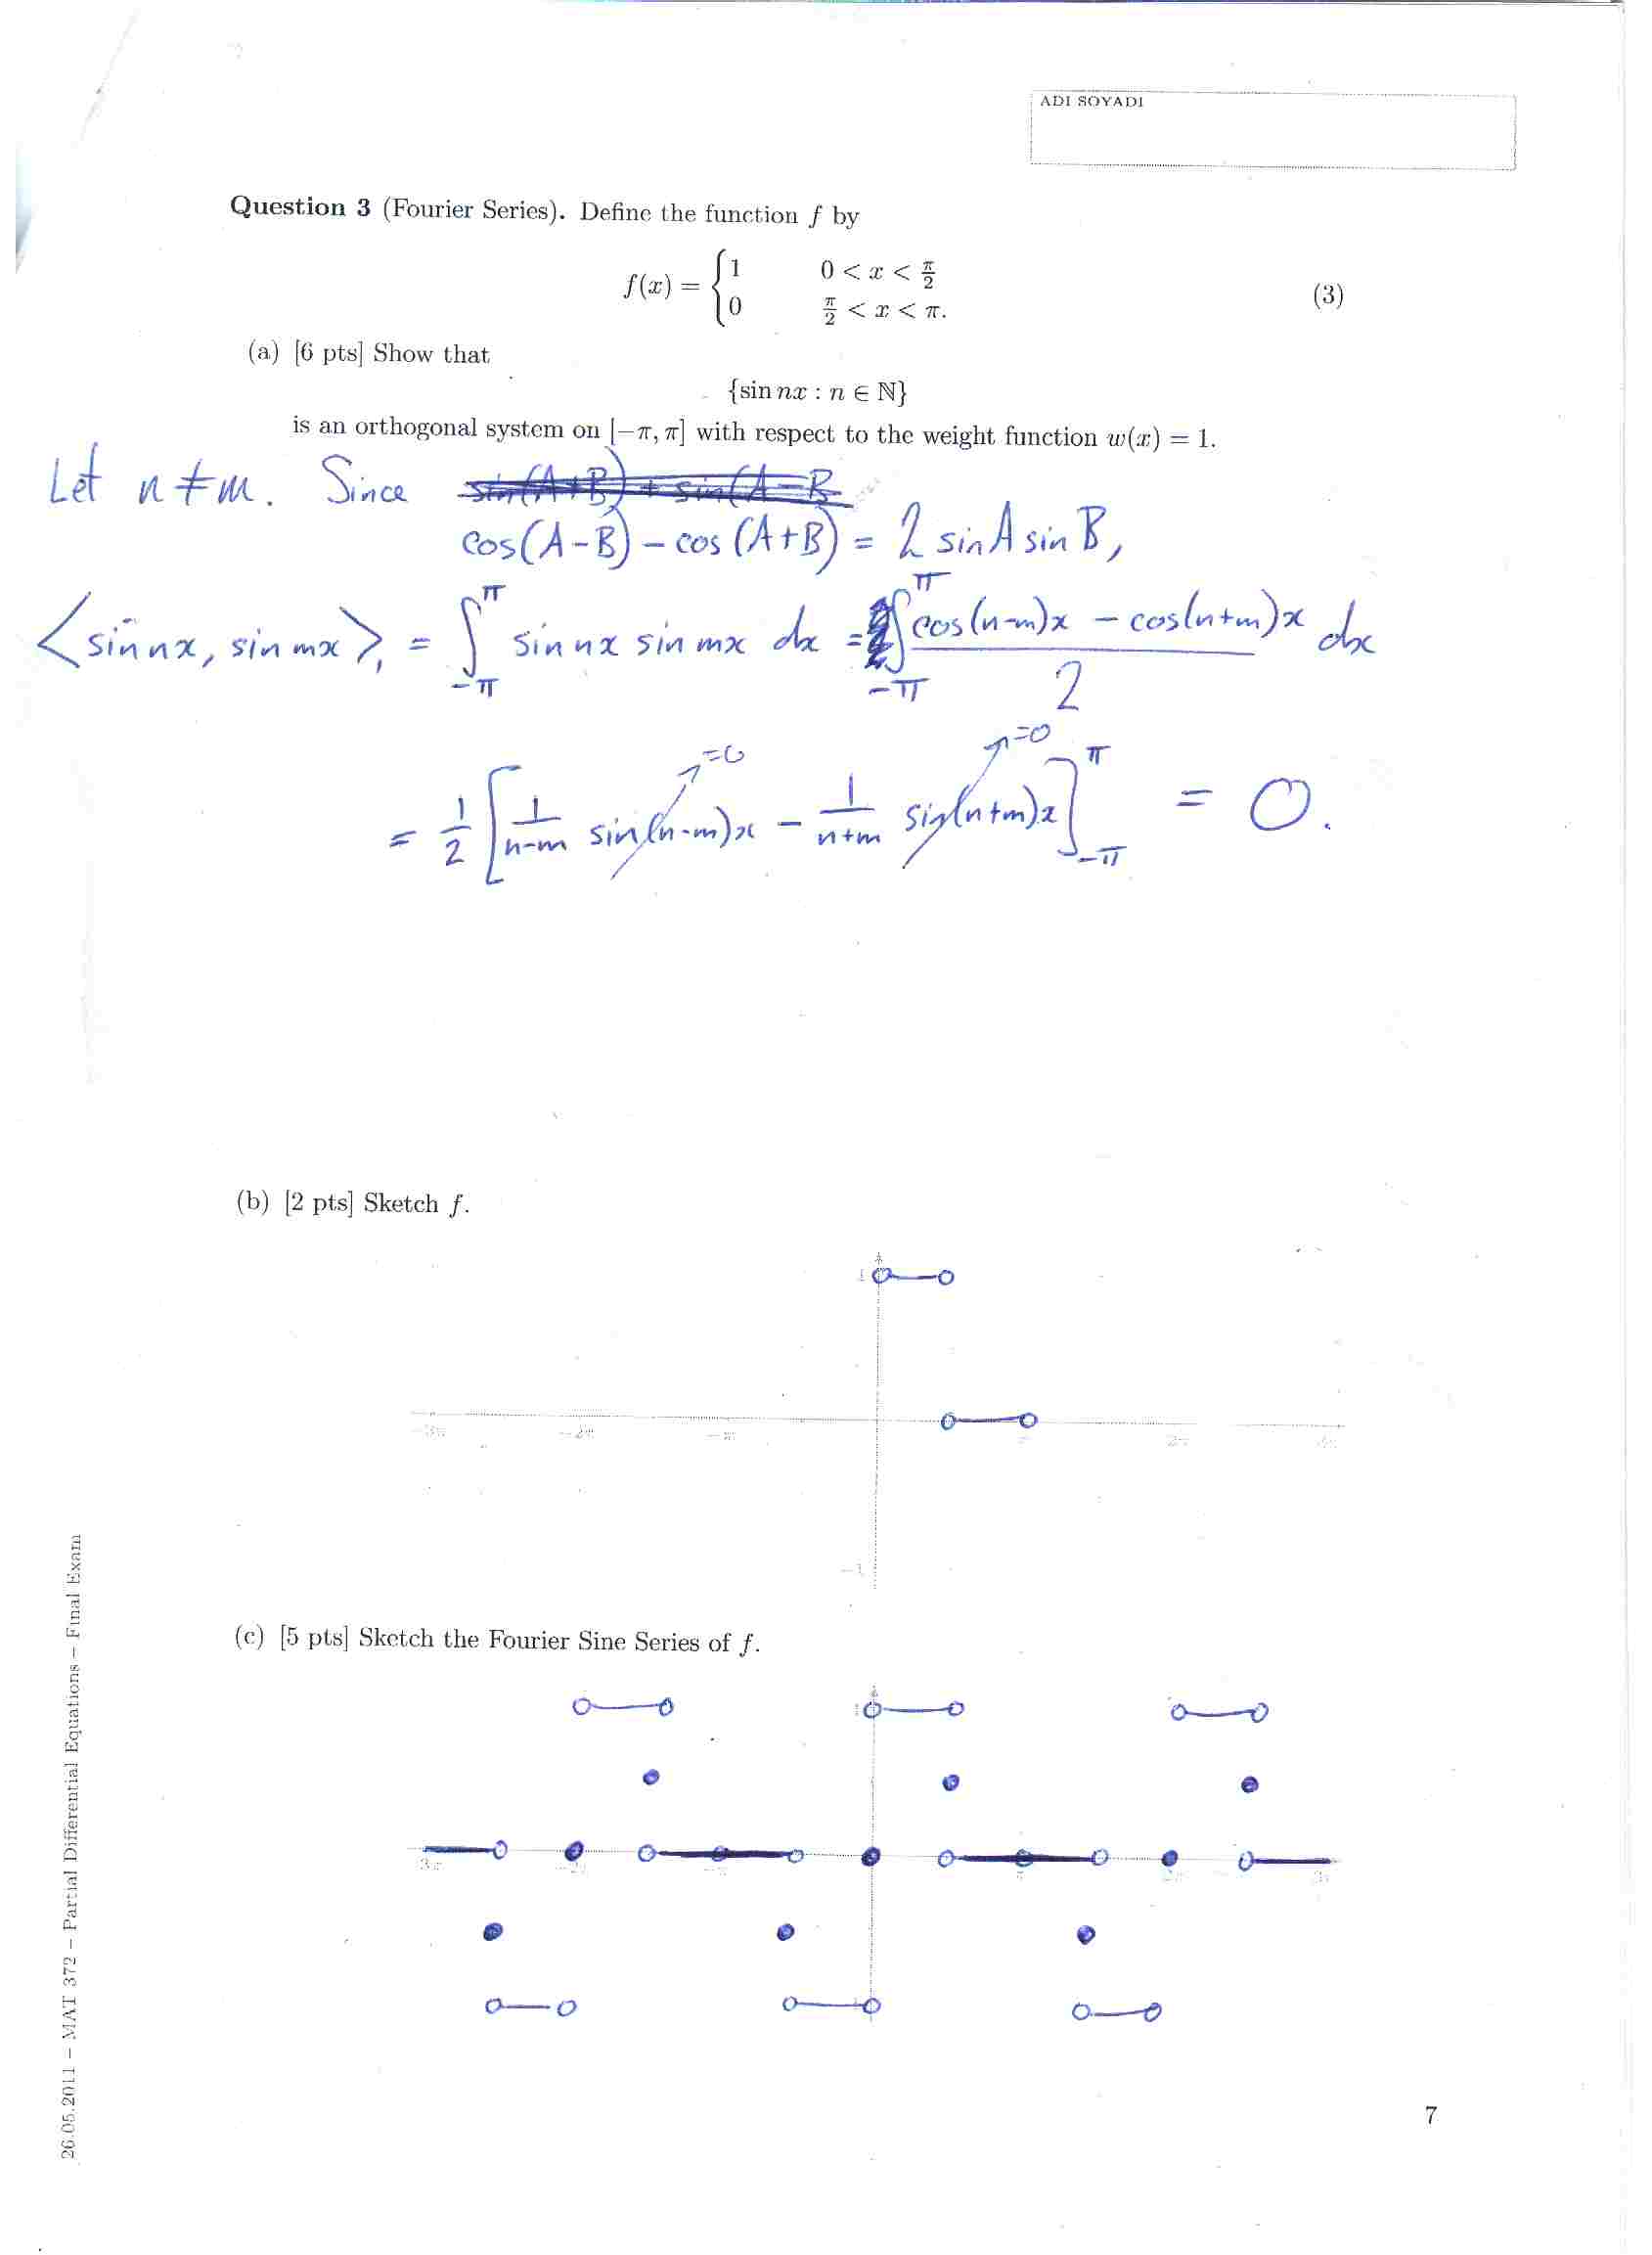 ADI SOYADI
Question 3 (Fourier Series). Define the function f by
f(x) = { 1 0 < x < π/2
0 π/2 < x < π. (3)
(a) [6 pts] Show that
{sin nx : n ∈ ℕ}
is an orthogonal system on [−π, π] with respect to the weight function w(x) = 1.
Let n ≠ m. Since sin(A+B) + sin(A−B
cos(A−B) − cos(A+B) = 2 sin A sin B,
⟨sin nx, sin mx⟩₁ = ∫_{-π}^{π} sin nx sin mx dx = ∫_{-π}^{π} (cos(n−m)x − cos(n+m)x)/2 dx
= 1/2 [ 1/(n−m) sin(n−m)x →=0 − 1/(n+m) sin(n+m)x →=0 ]_{-π}^{π} = 0.
(b) [2 pts] Sketch f.
1
−3π −2π −π π 2π 3π
−1
(c) [5 pts] Sketch the Fourier Sine Series of f.
7
26.05.2011 – MAT 372 – Partial Differential Equations – Final Exam